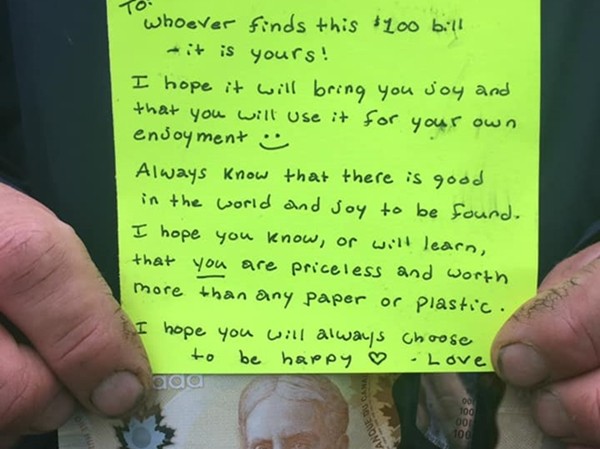 To:
whoever finds this $100 bill
- it is yours!
I hope it will bring you joy and
that you will use it for your own
enjoyment
Always know that there is good
in the world and joy to be found.
I hope you know, or will learn,
that you are priceless and worth
more than any paper or plastic.
I hope you will always choose
to be happy ♡ - Love